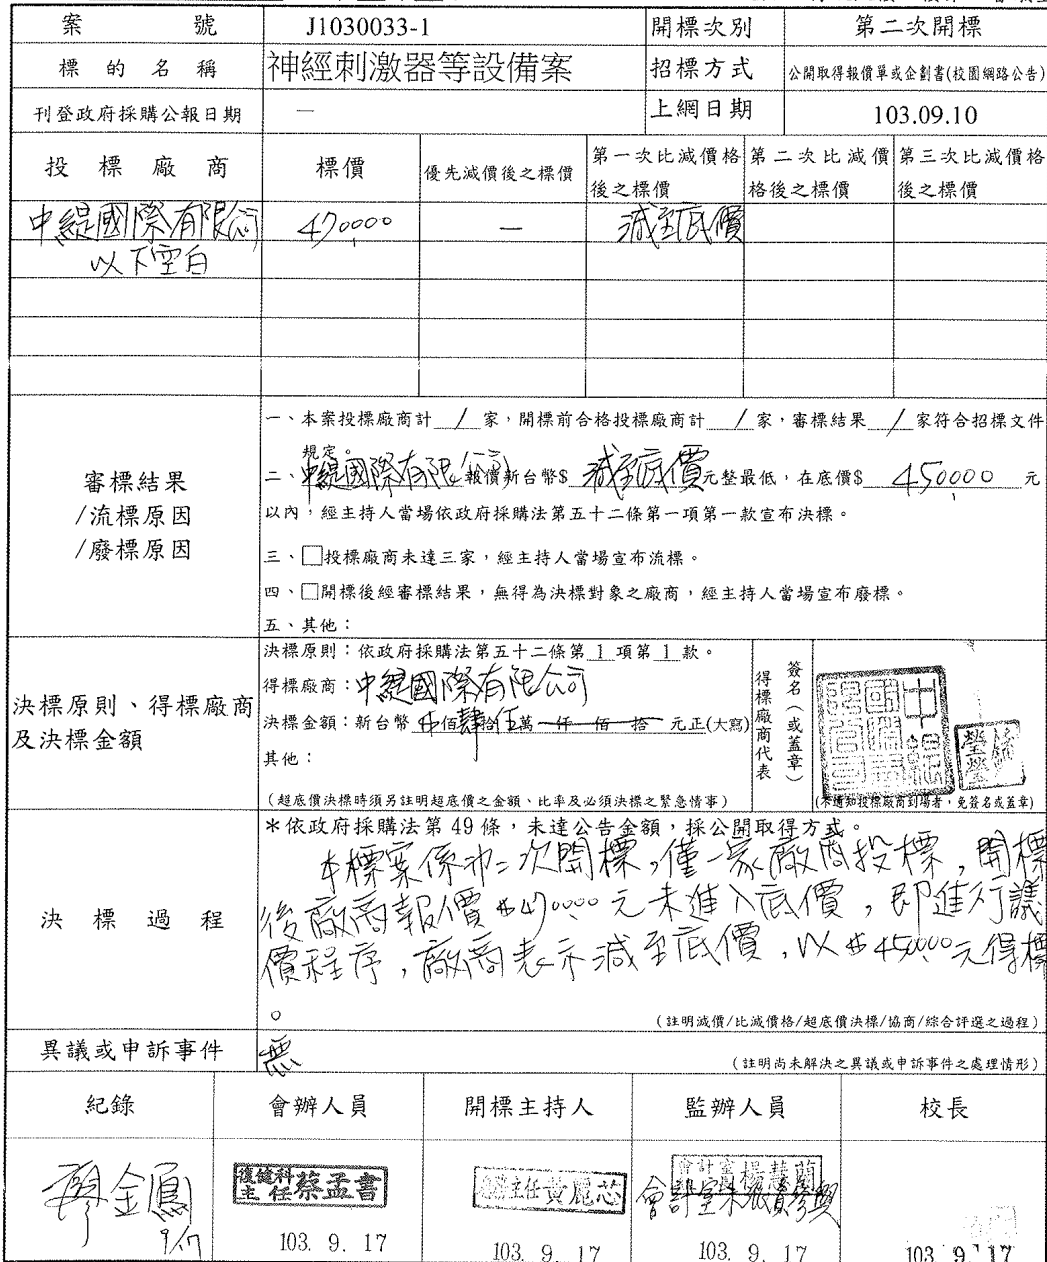 案 號 J1030033-1 開標次別 第二次開標
標 的 名 稱 神經刺激器等設備案 招標方式 公開取得報價單或企劃書(校園網路公告)
刊登政府採購公報日期 — 上網日期 103.09.10
投 標 廠 商 標價 優先減價後之標價 第一次比減價格後之標價 第二次比減價格後之標價 第三次比減價格後之標價
中緹國際有限公司 470000 — 減至底價
以下空白
審標結果
/流標原因
/廢標原因
一、本案投標廠商計 1 家,開標前合格投標廠商計 1 家,審標結果 1 家符合招標文件
規定。
二、中緹國際有限公司報價新台幣$ 減至底價 元整最低,在底價$ 450000 元
以內,經主持人當場依政府採購法第五十二條第一項第一款宣布決標。
三、□投標廠商未達三家,經主持人當場宣布流標。
四、□開標後經審標結果,無得為決標對象之廠商,經主持人當場宣布廢標。
五、其他:
決標原則、得標廠商
及決標金額
決標原則:依政府採購法第五十二條第 1 項第 1 款。
得標廠商:中緹國際有限公司
決標金額:新台幣 佰肆拾伍萬 仟 佰 拾 元正(大寫)
其他:
(超底價決標時須另註明超底價之金額、比率及必須決標之緊急情事)
得標廠商代表
簽名(或蓋章)
(未通知投標廠商到場者,免簽名或蓋章)
決 標 過 程
*依政府採購法第 49 條,未達公告金額,採公開取得方式。
本標案係第二次開標,僅一家廠商投標,開標
後廠商報價$470000元未進入底價,即進行議
價程序,廠商表示減至底價,以$450000元得標
。
(註明減價/比減價格/超底價決標/協商/綜合評選之過程)
異議或申訴事件 無 (註明尚未解決之異議或申訴事件之處理情形)
紀錄 會辦人員 開標主持人 監辦人員 校長
廖金鳳 復健科主任蔡孟書 主任黃麗芯 會計室楊慧蘭
會計室未派員參與
9/17 103. 9. 17 103. 9. 17 103. 9. 17 103. 9. 17